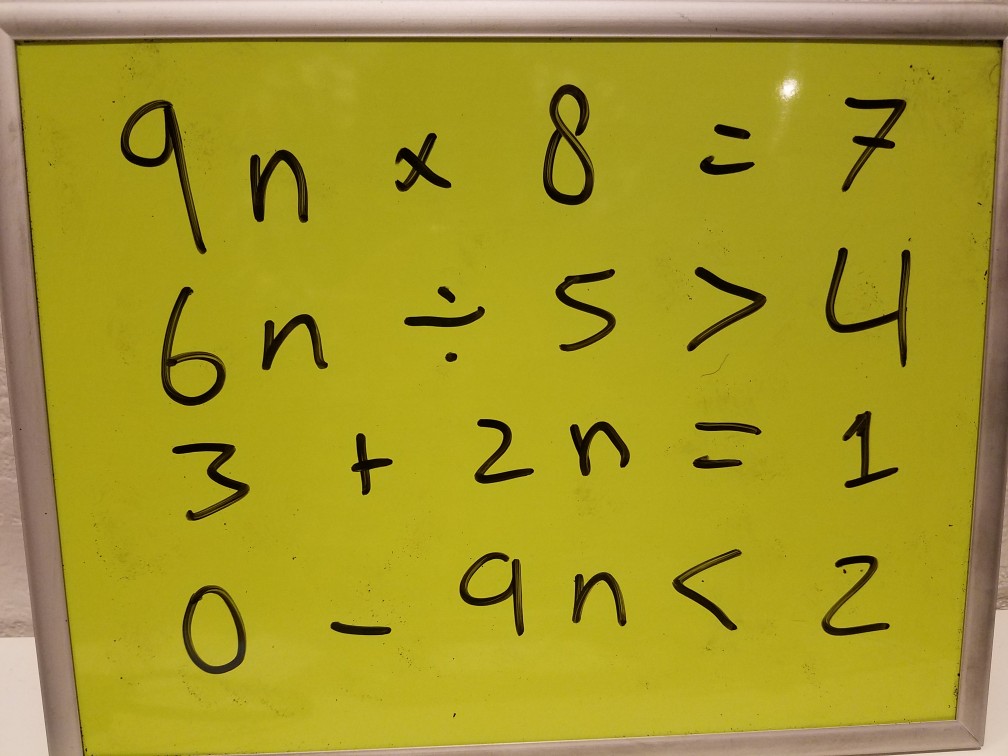 9n × 8 = 7
6n ÷ 5 > 4
3 + 2n = 1
0 - 9n < 2